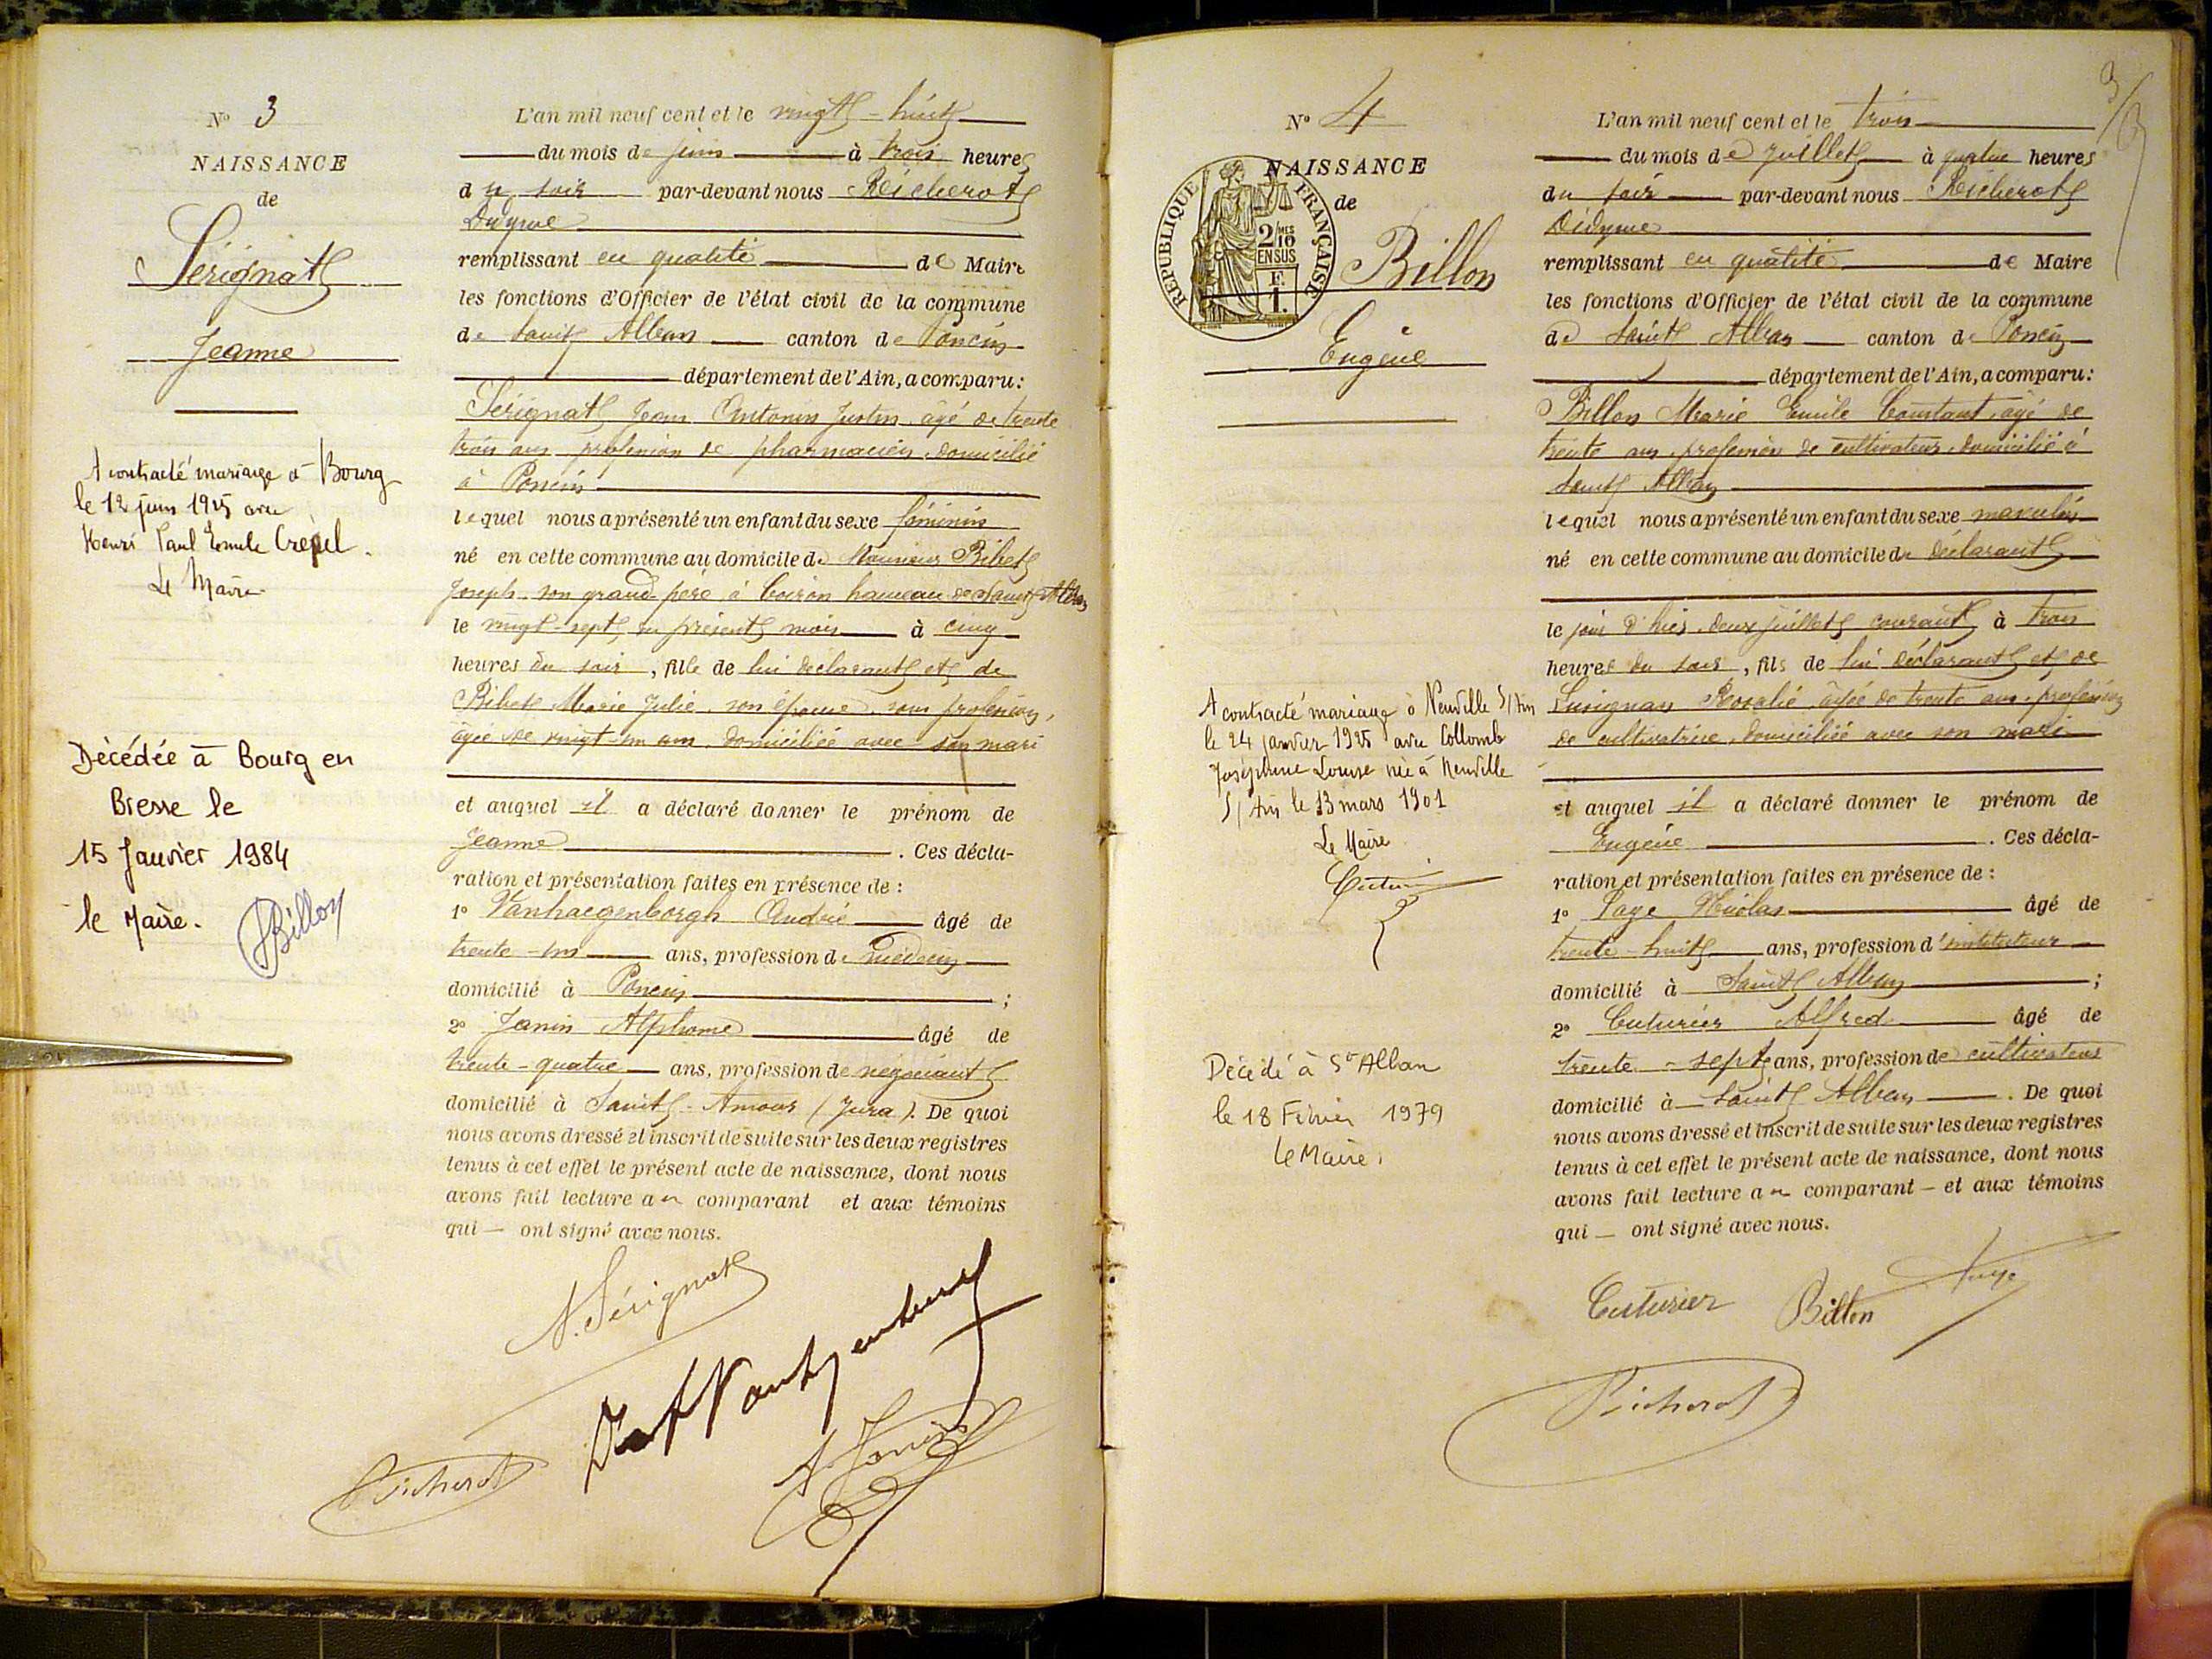 N° 3
NAISSANCE
de
Sérignat
Jeanne
A contracté mariage à Bourg
le 12 juin 1925 avec
Henri Paul Emile Crépel.
Le Maire
Décédée à Bourg en
Bresse le
15 Janvier 1984
le Maire.
Billon
L'an mil neuf cent et le vingt-huit
du mois de juin à trois heures
du soir par-devant nous Reicherot
Didyme
remplissant en qualité de Maire
les fonctions d'Officier de l'état civil de la commune
de Saint Alban canton de Poncin
département de l'Ain, a comparu :
Sérignat Jean Antonin Justin âgé de trente
trois ans profession de pharmacien domicilié
à Poncin
lequel nous a présenté un enfant du sexe féminin
né en cette commune au domicile de Monsieur Bibet
Joseph son grand père, à Coiron hameau de Saint Alban
le vingt-sept du présent mois à cinq
heures du soir, fille de lui déclarant et de
Bibet Marie Julie, son épouse, sans profession,
âgée de vingt-un ans, domiciliée avec son mari
et auquel il a déclaré donner le prénom de
Jeanne. Ces décla-
ration et présentation faites en présence de :
1° Vanhaegenborgh André âgé de
trente-un ans, profession de médecin
domicilié à Poncin ;
2° Janin Alphonse âgé de
trente-quatre ans, profession de négociant
domicilié à Saint-Amour (Jura). De quoi
nous avons dressé et inscrit de suite sur les deux registres
tenus à cet effet le présent acte de naissance, dont nous
avons fait lecture au comparant et aux témoins
qui — ont signé avec nous.
A. Sérignat
A. Janin
Richerot
3
N° 4
NAISSANCE
de
RÉPUBLIQUE FRANÇAISE
2/10 MES
EN SUS
F.
1.
Billon
Eugène
A contracté mariage à Neuville s/Ain
le 24 janvier 1925 avec Collomb
Joséphine Louise née à Neuville
s/Ain le 13 mars 1901
Le Maire
Décédé à St Alban
le 18 Février 1979
Le Maire,
L'an mil neuf cent et le trois
du mois de juillet à quatre heures
du soir par-devant nous Reicherot
Didyme
remplissant en qualité de Maire
les fonctions d'Officier de l'état civil de la commune
de Saint Alban canton de Poncin
département de l'Ain, a comparu :
Billon Marie Emile Constant, âgé de
trente ans, profession de cultivateur, domicilié à
Saint Alban
lequel nous a présenté un enfant du sexe masculin
né en cette commune au domicile du déclarant
le jour d'hier, deux juillet courant à trois
heures du soir, fils de lui déclarant et de
Lusignan Rosalie, âgée de trente ans, profession
de cultivatrice, domiciliée avec son mari
et auquel il a déclaré donner le prénom de
Eugène. Ces décla-
ration et présentation faites en présence de :
1° Page Nicolas âgé de
trente-huit ans, profession d'instituteur
domicilié à Saint Alban ;
2° Cuturier Alfred âgé de
trente-sept ans, profession de cultivateur
domicilié à Saint Alban. De quoi
nous avons dressé et inscrit de suite sur les deux registres
tenus à cet effet le présent acte de naissance, dont nous
avons fait lecture au comparant — et aux témoins
qui — ont signé avec nous.
Cuturier Billon Page
Richerot